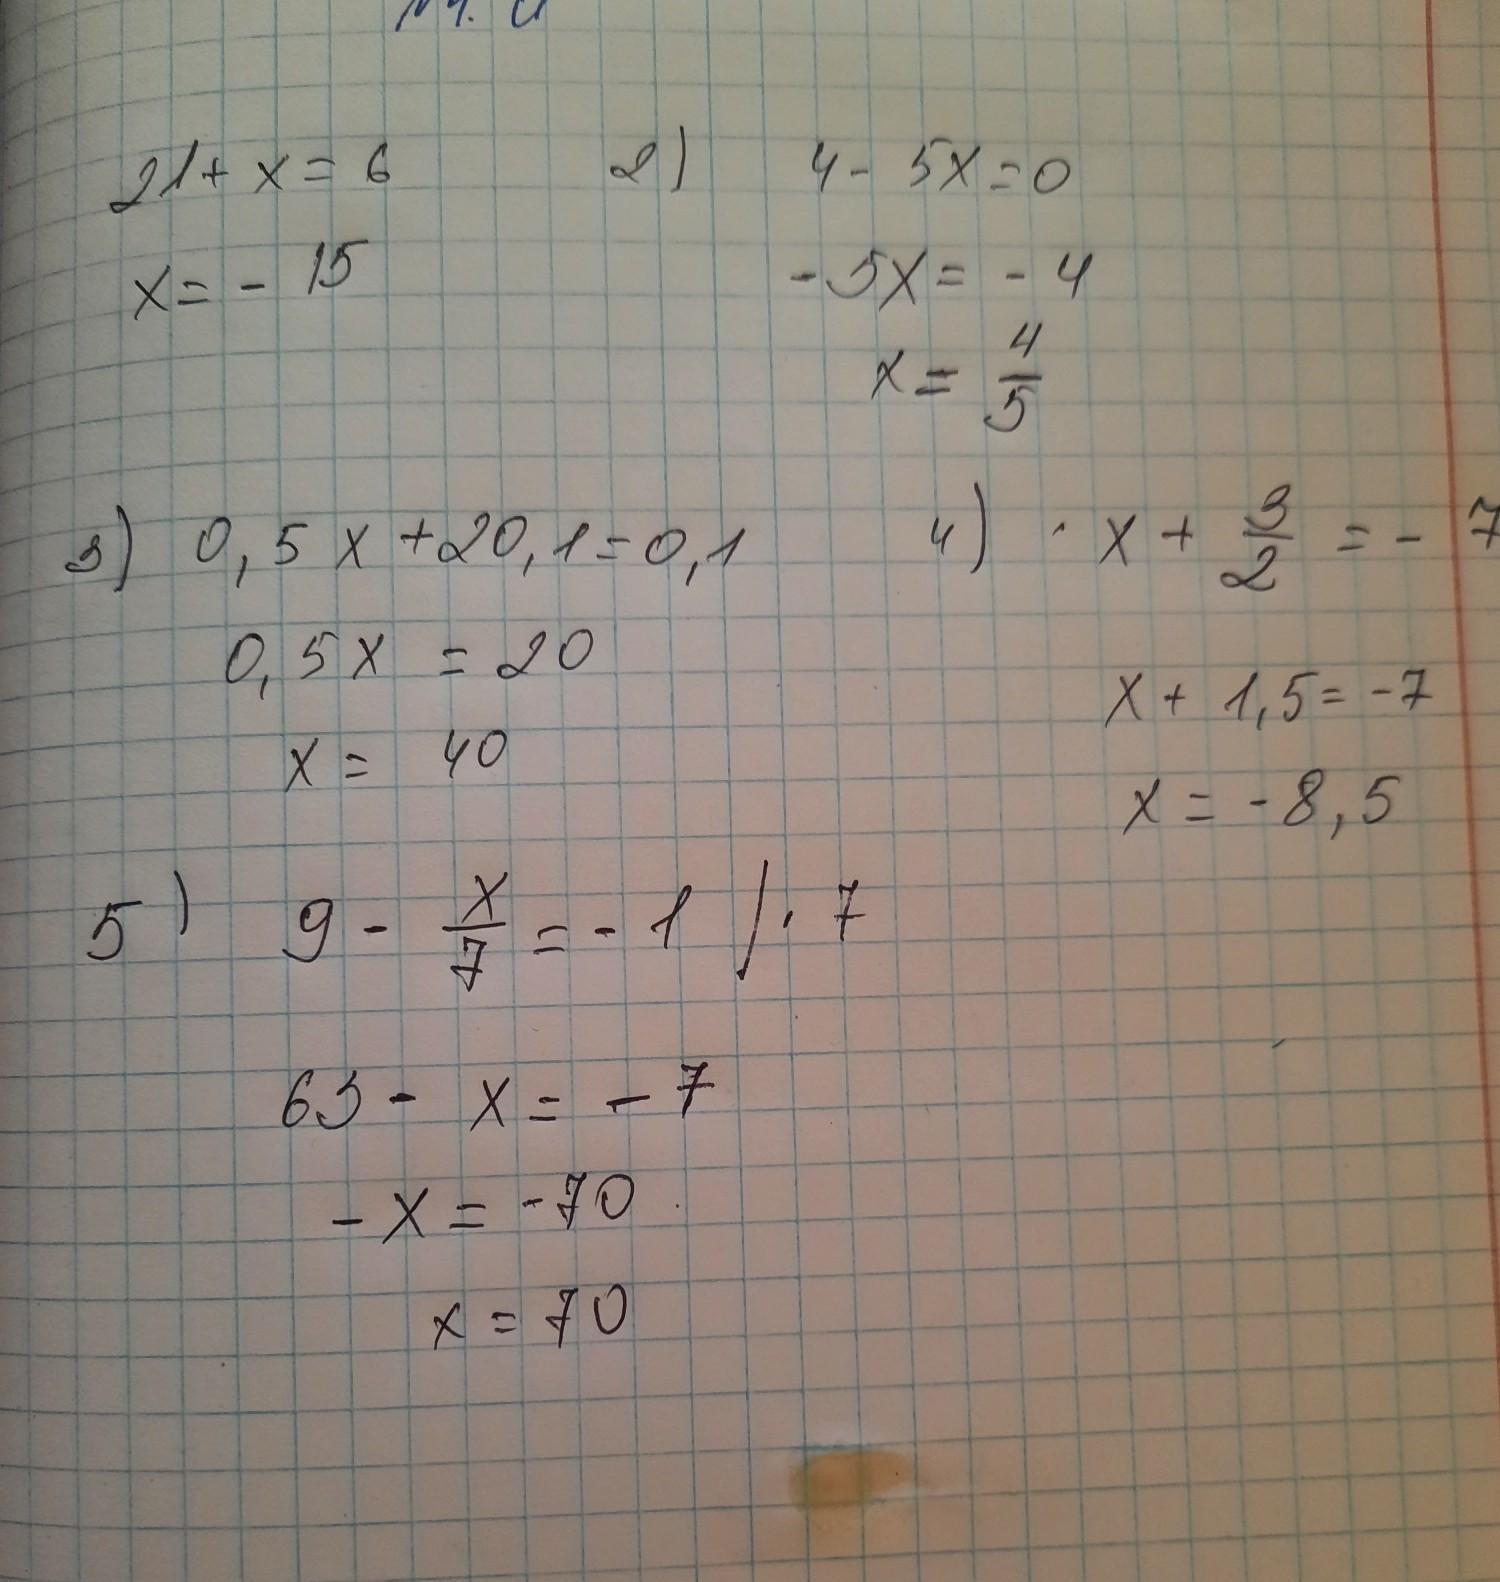 21 + x = 6
x = - 15
2) 4 - 5x = 0
-5x = - 4
x = 4/5
3) 0,5x + 20,1 = 0,1
0,5x = 20
x = 40
4) x + 3/2 = - 7
x + 1,5 = -7
x = -8,5
5) 9 - x/7 = - 1 / · 7
63 - x = - 7
- x = -70
x = 70